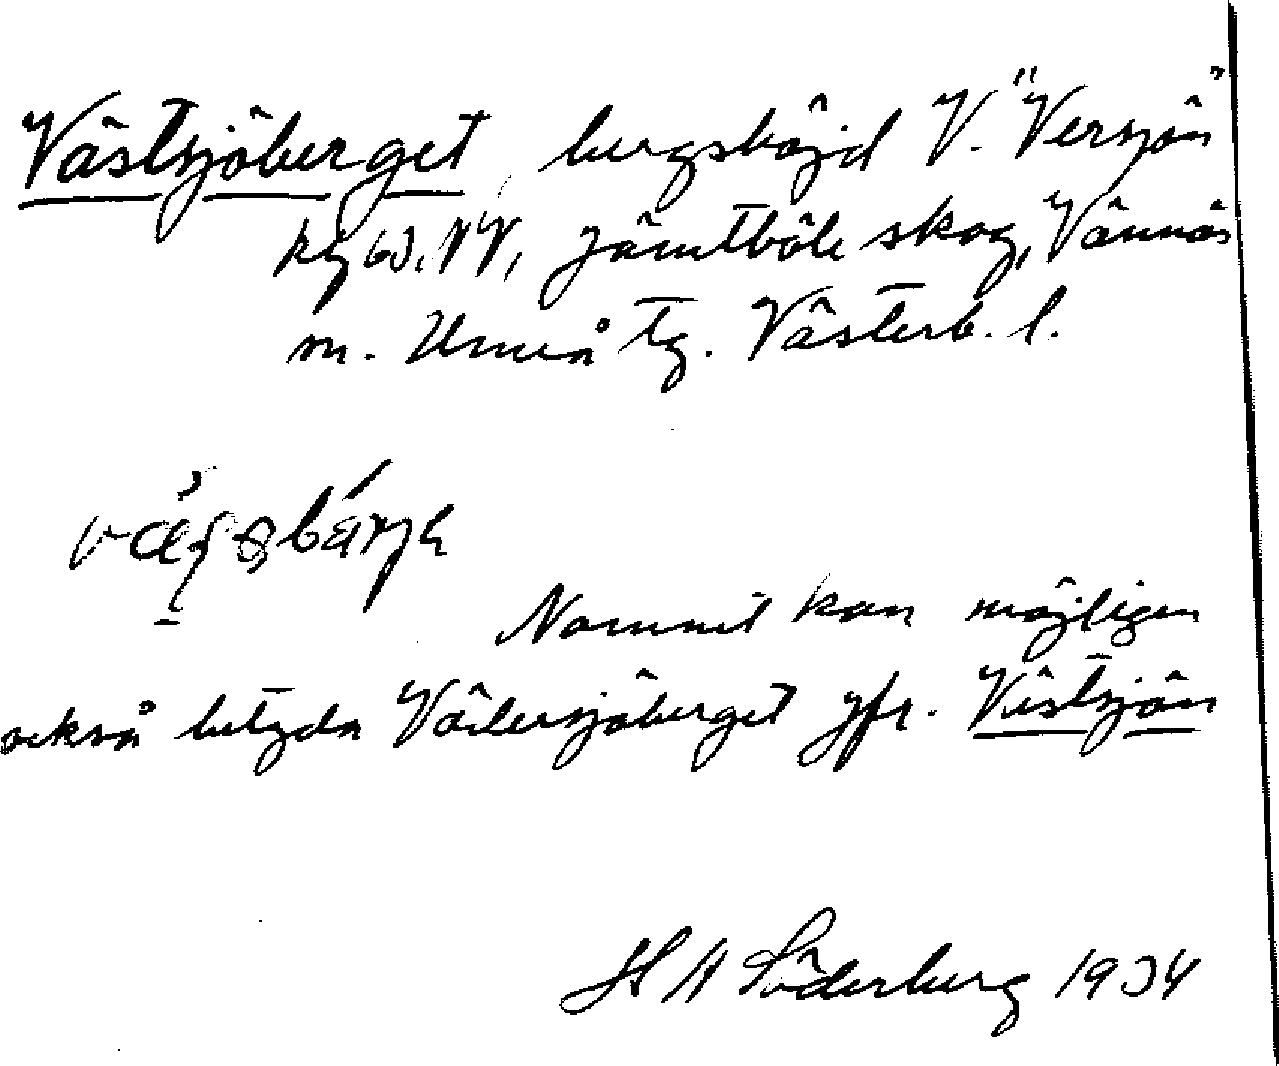 Västsjöberget, bergshöjd V. "Versjön"
kbl 60. NV, Jämtböle skog, Vännäs
sn. Umeå tg. Västerb. l.
Namnet kan möjligen
också betyda Vädersjöberget jfr. Västsjön
H A Söderberg 1934